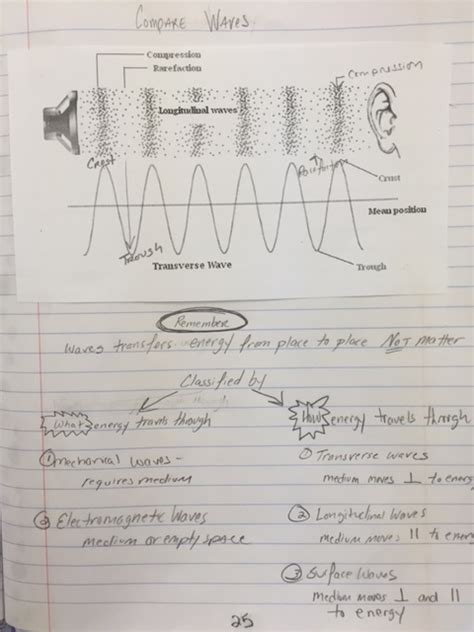 COMPARE WAVES
Compression
Rarefaction
Compression
Longitudinal waves
Crest
Rarefaction
Crust
Mean position
Trough
Transverse Wave
Trough
Remember
waves transfers energy from place to place NOT matter
Classified by
What energy travels through
How energy travels through
① mechanical waves -
requires medium
① Transverse waves
medium moves ⊥ to energy
② Electromagnetic Waves
medium or empty space
② Longitudinal Waves
medium moves || to energy
③ Surface Waves
medium moves ⊥ and ||
to energy
25